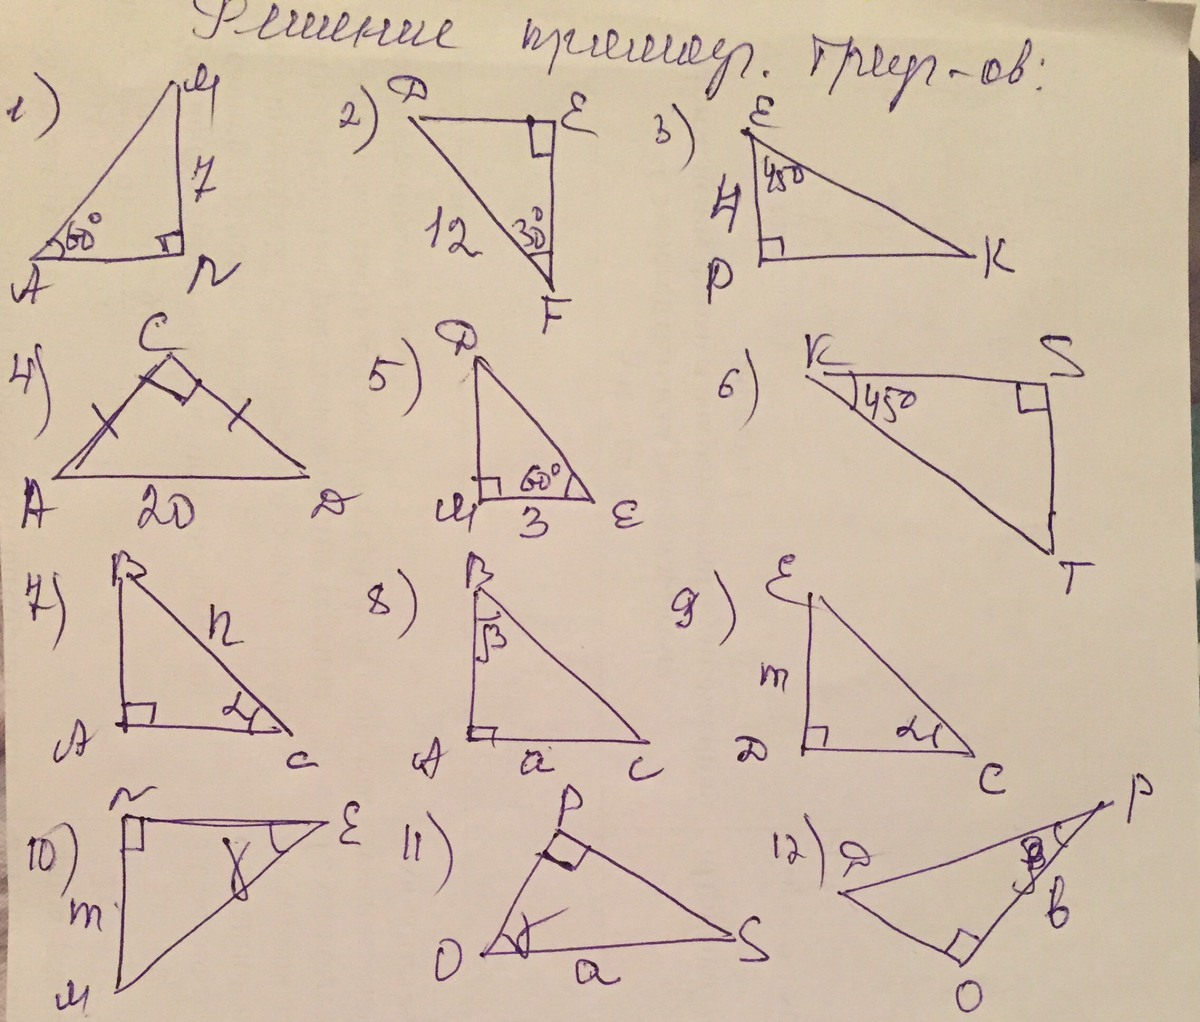 Решение прямоуг. треуг-ов:
1) M 7 60° A N
2) D E 12 30° F
3) E 45° 4 P K
4) C A 20 D
5) D 60° M 3 E
6) K S 45° T
7) B n α A C
8) B β A a C
9) E m α D C
10) N E γ m M
11) P γ O a S
12) D P β b O